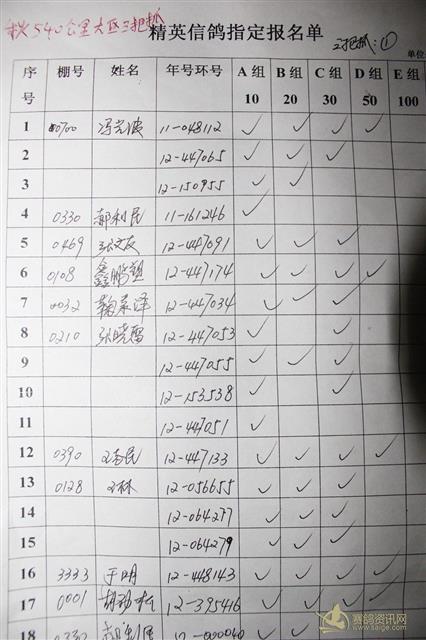 秋540公里大区三把抓
精英信鸽指定报名单
三把抓:①
单位
序号 棚号 姓名 年号环号 A组10 B组20 C组30 D组50 E组100
1 00700 11-048112 ✓ ✓ ✓ ✓
2 12-447065 ✓ ✓ ✓
3 12-150955 ✓ ✓
4 0330 郝利民 11-161246 ✓
5 0469 张文友 12-447091 ✓ ✓ ✓
6 0108 鑫鹏塑 12-447174 ✓ ✓ ✓ ✓
7 0032 鞠 泽 12-447034 ✓ ✓ ✓
8 0210 张晓雷 12-447053 ✓ ✓
9 12-447055 ✓ ✓ ✓
10 12-153538 ✓ ✓
11 12-447051 ✓
12 0390 民 12-447133 ✓ ✓ ✓ ✓
13 0128 林 12-056655 ✓ ✓ ✓
14 12-064277 ✓ ✓ ✓
15 12-064279 ✓ ✓ ✓
16 3333 于明 12-448143 ✓ ✓ ✓ ✓
17 0001 胡 松 12-395416 ✓ ✓ ✓ ✓
18 0330
赛鸽资讯网
www.saige.com